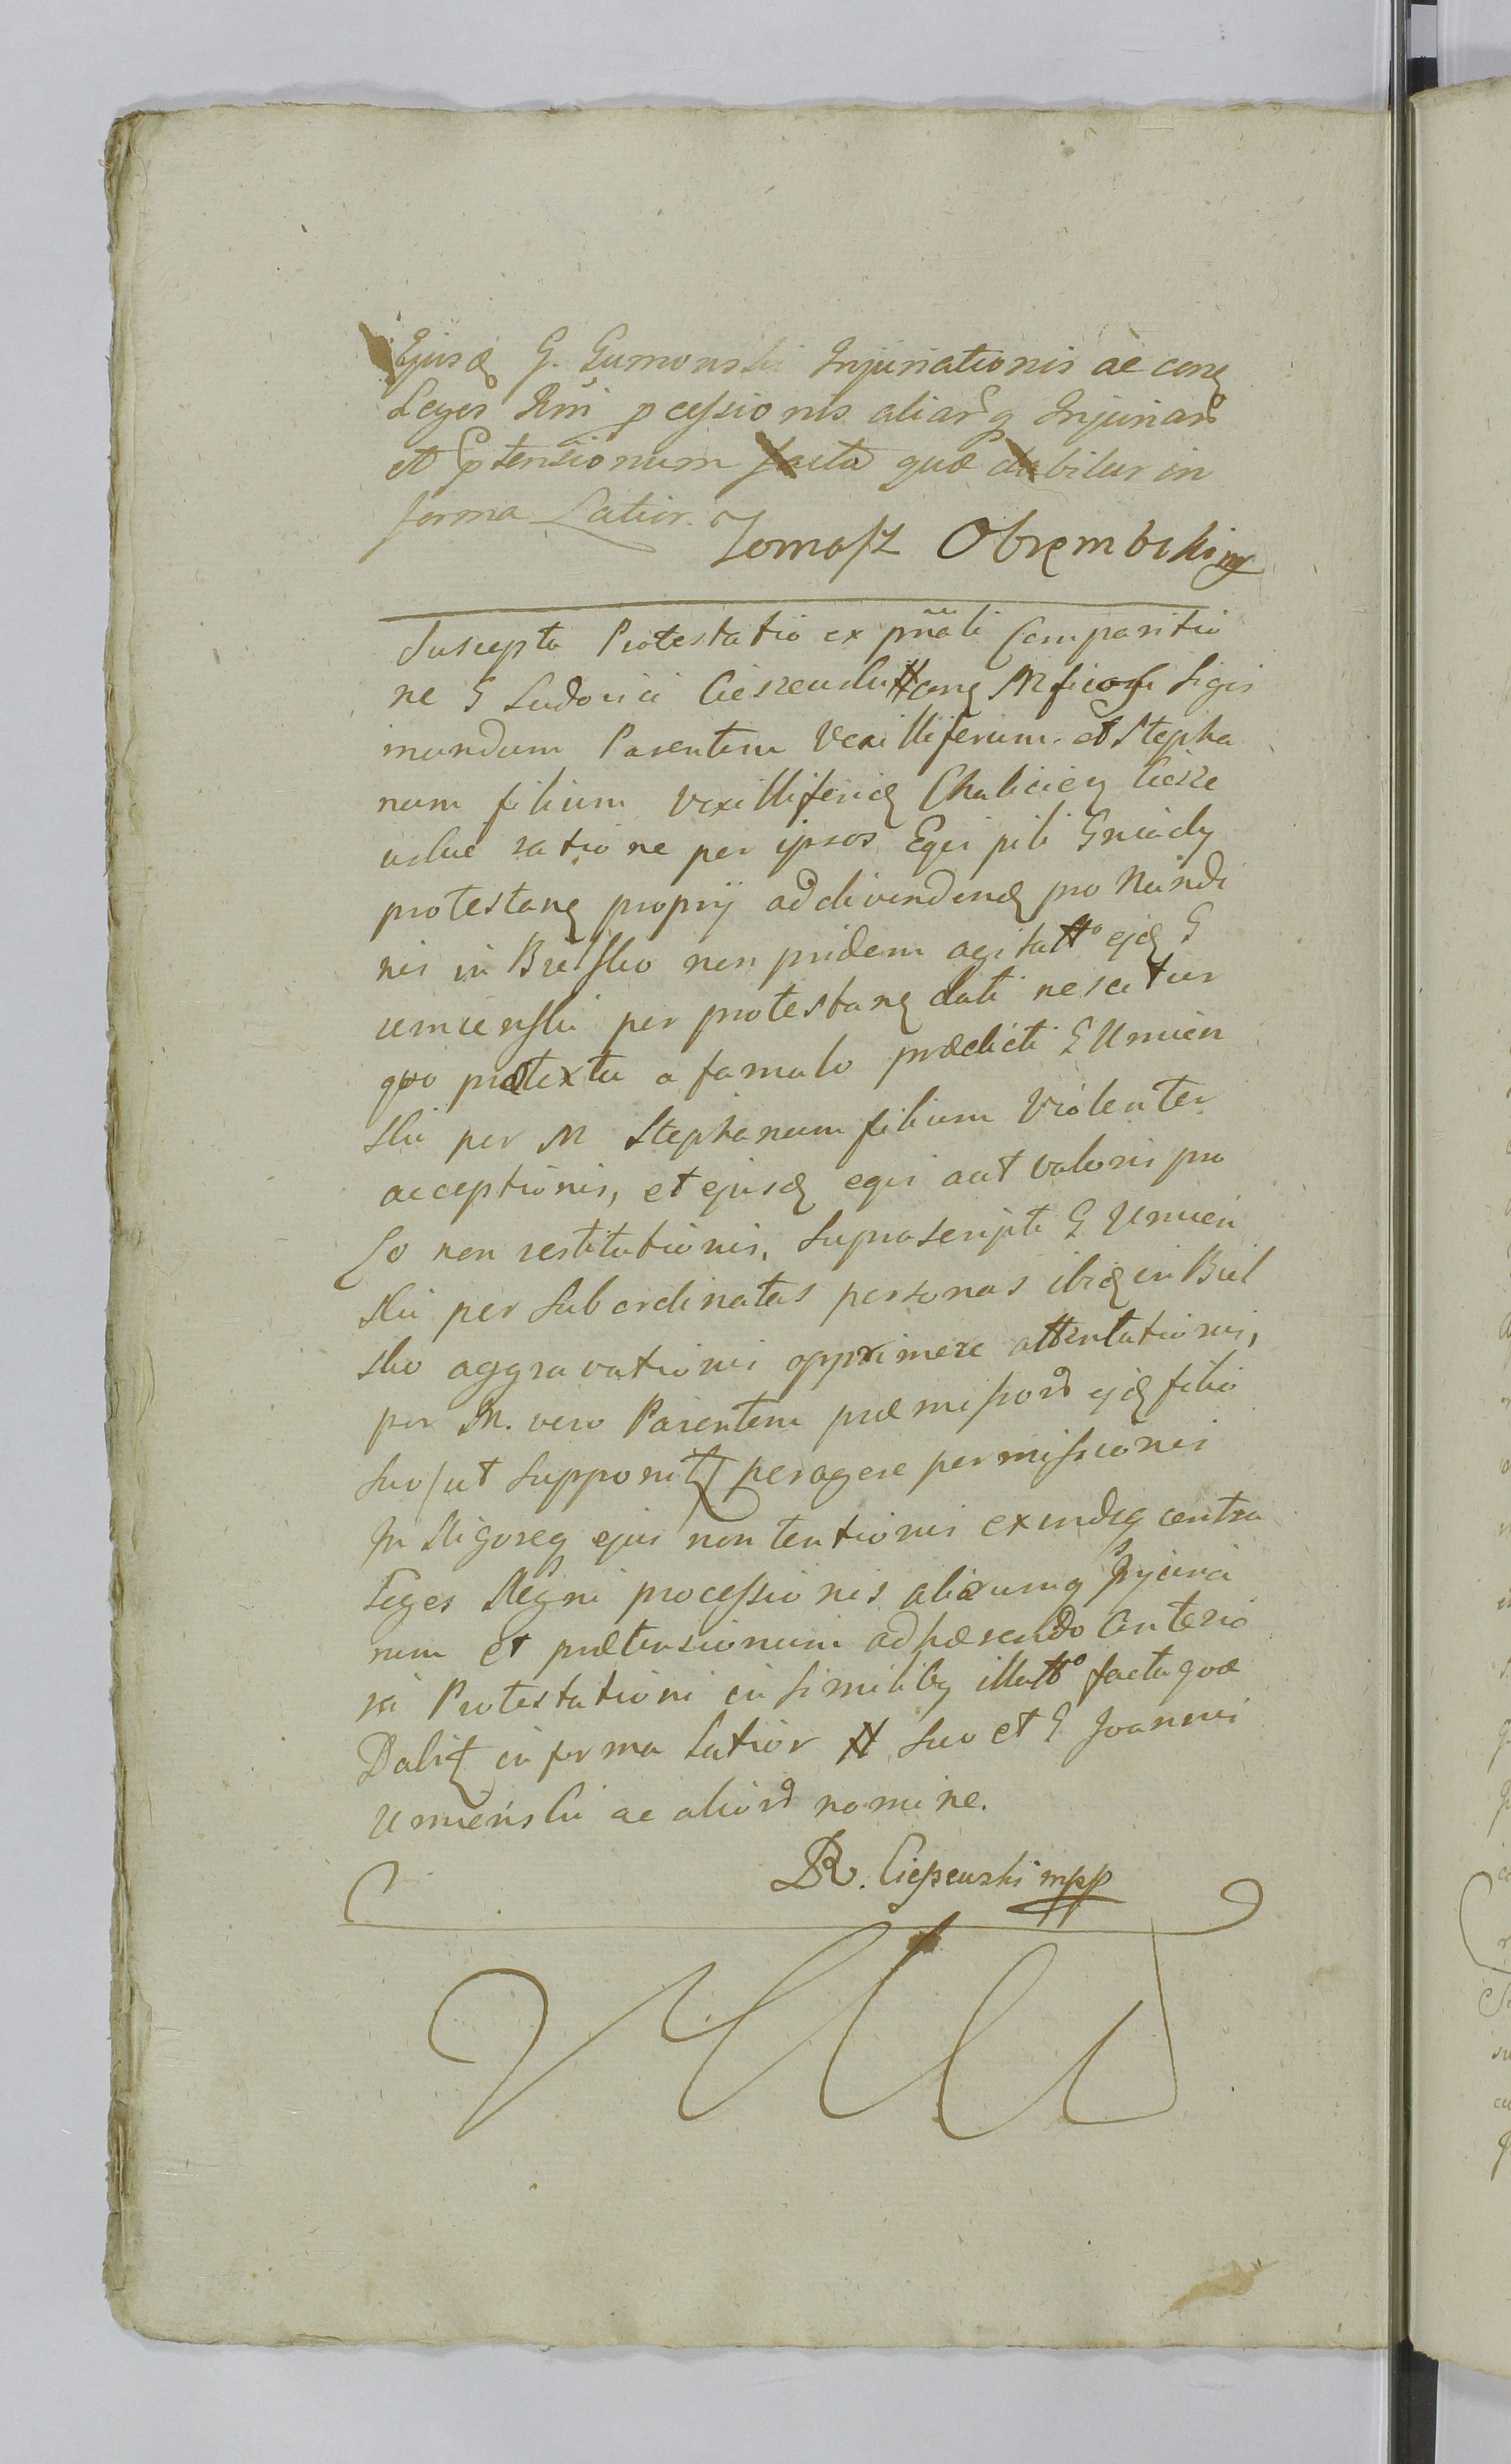 Ejusd G. Gumonski Injuriationis ac conq
Leges Rni pcessionis aliarq Injuriar
et Ptensionum facta quæ dabitur in
forma Latior.
Tomasz Obrembski mp
Suscepta Protestatio ex pnali Comparitio
ne G Ludovici Cieszewski H conq Mficos Sigis
mundum Parentem Vexilliferum et Stepha
num filium Vexilliferid Chaliciey Ciesze
wskie ratione per ipsos Equi pili Gniady
protestanq proprij ad divendend pro Nundi
nis in Bielsko non pridem agitatto ejd G
Umienski per protestanq dati nescitur
quo prætextu a famulo prædicti G Umien
ski per M Stephanum filium Violenter
acceptionis, et ejusd equi aut valoris pro
Eo non restitutionis, Suprascripti G Umien
ski per Subordinatas personas ibid in Biel
sko aggravationis opprimere attentationis,
per M. vero Parentem præmissor ejd filio
suo / ut supponitq / peragere permissionis
In Rigoreq ejus non tentionis exindeq contra
Leges Regni processionis aliarumq Injuria
rum et prætensionum adhærendo Anterio
ri Protestationi in similibq illatto facta quæ
Dabitq in forma Latior H suo et G Joannis
Umieński ac alior nomine.
LR. Cieszewski mpp